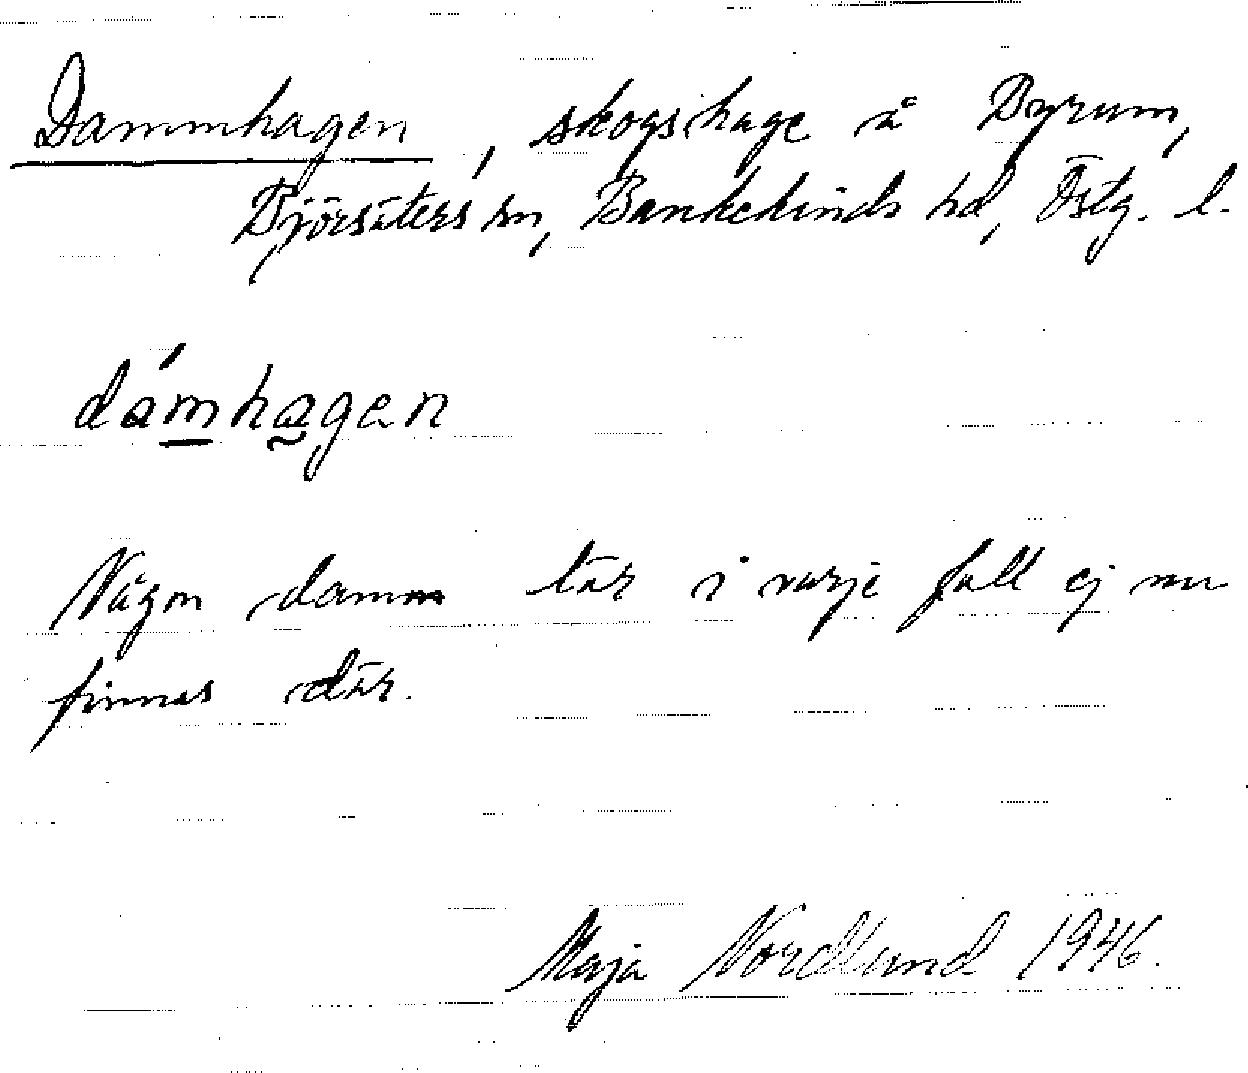 Dammhagen, skogshage å Byrum,
Björsäters sn, Bankekinds hd, Östg. l.
dámhagen
Någon damm lär i varje fall ej nu
finnas där.
Maja Nordlund 1946.